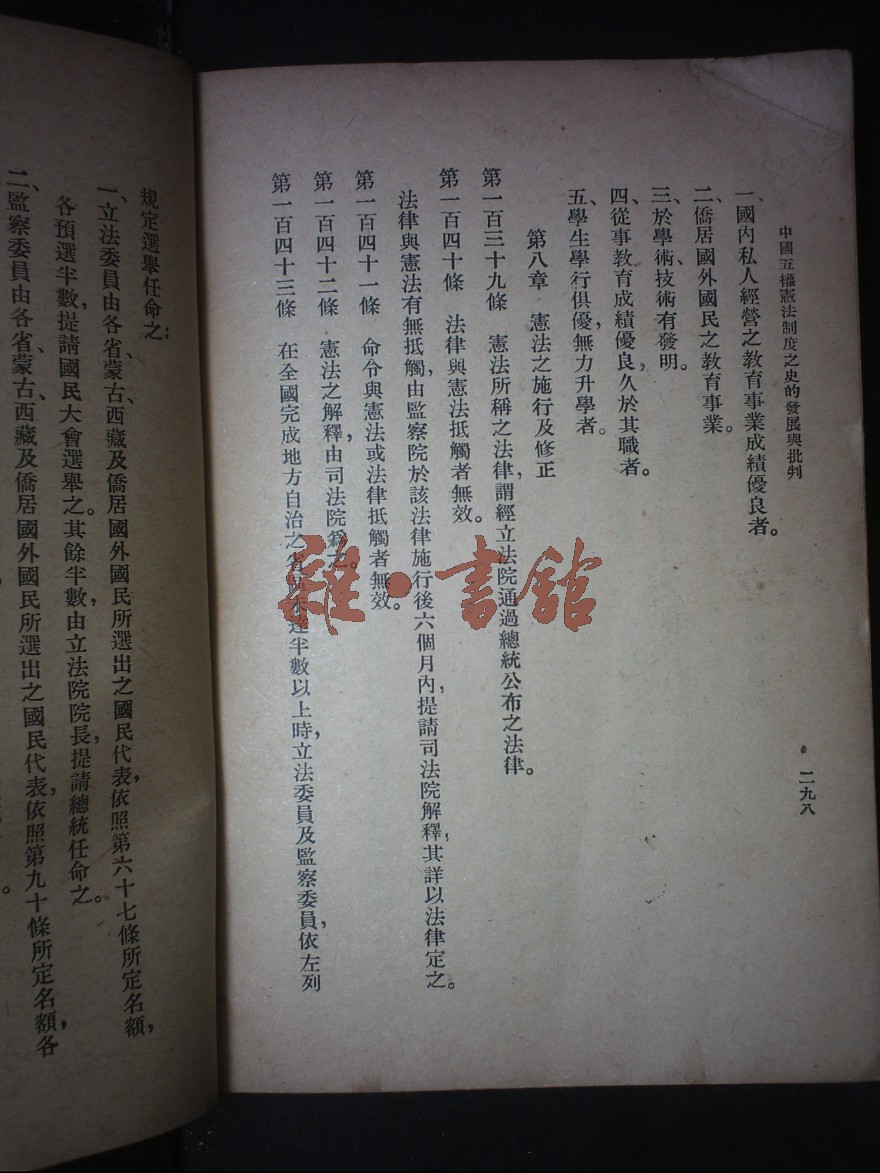 中國五權憲法制度之史的發展與批判
二九八
一、國內私人經營之教育事業成績優良者。
二、僑居國外國民之教育事業。
三、於學術、技術有發明。
四、從事教育成績優良,久於其職者。
五、學生學行俱優,無力升學者。
第八章 憲法之施行及修正
第一百三十九條 憲法所稱之法律,謂經立法院通過總統公布之法律。
第一百四十條 法律與憲法抵觸者無效。
法律與憲法有無抵觸,由監察院於該法律施行後六個月內,提請司法院解釋,其詳以法律定之。
第一百四十一條 命令與憲法或法律抵觸者無效。
第一百四十二條 憲法之解釋,由司法院爲之。
第一百四十三條 在全國完成地方自治之省區未達半數以上時,立法委員及監察委員,依左列
規定選舉任命之:
一、立法委員由各省、蒙古、西藏及僑居國外國民所選出之國民代表,依照第六十七條所定名額,
各預選半數,提請國民大會選舉之。其餘半數,由立法院院長,提請總統任命之。
二、監察委員由各省、蒙古、西藏及僑居國外國民所選出之國民代表,依照第九十條所定名額,各
雜·書館